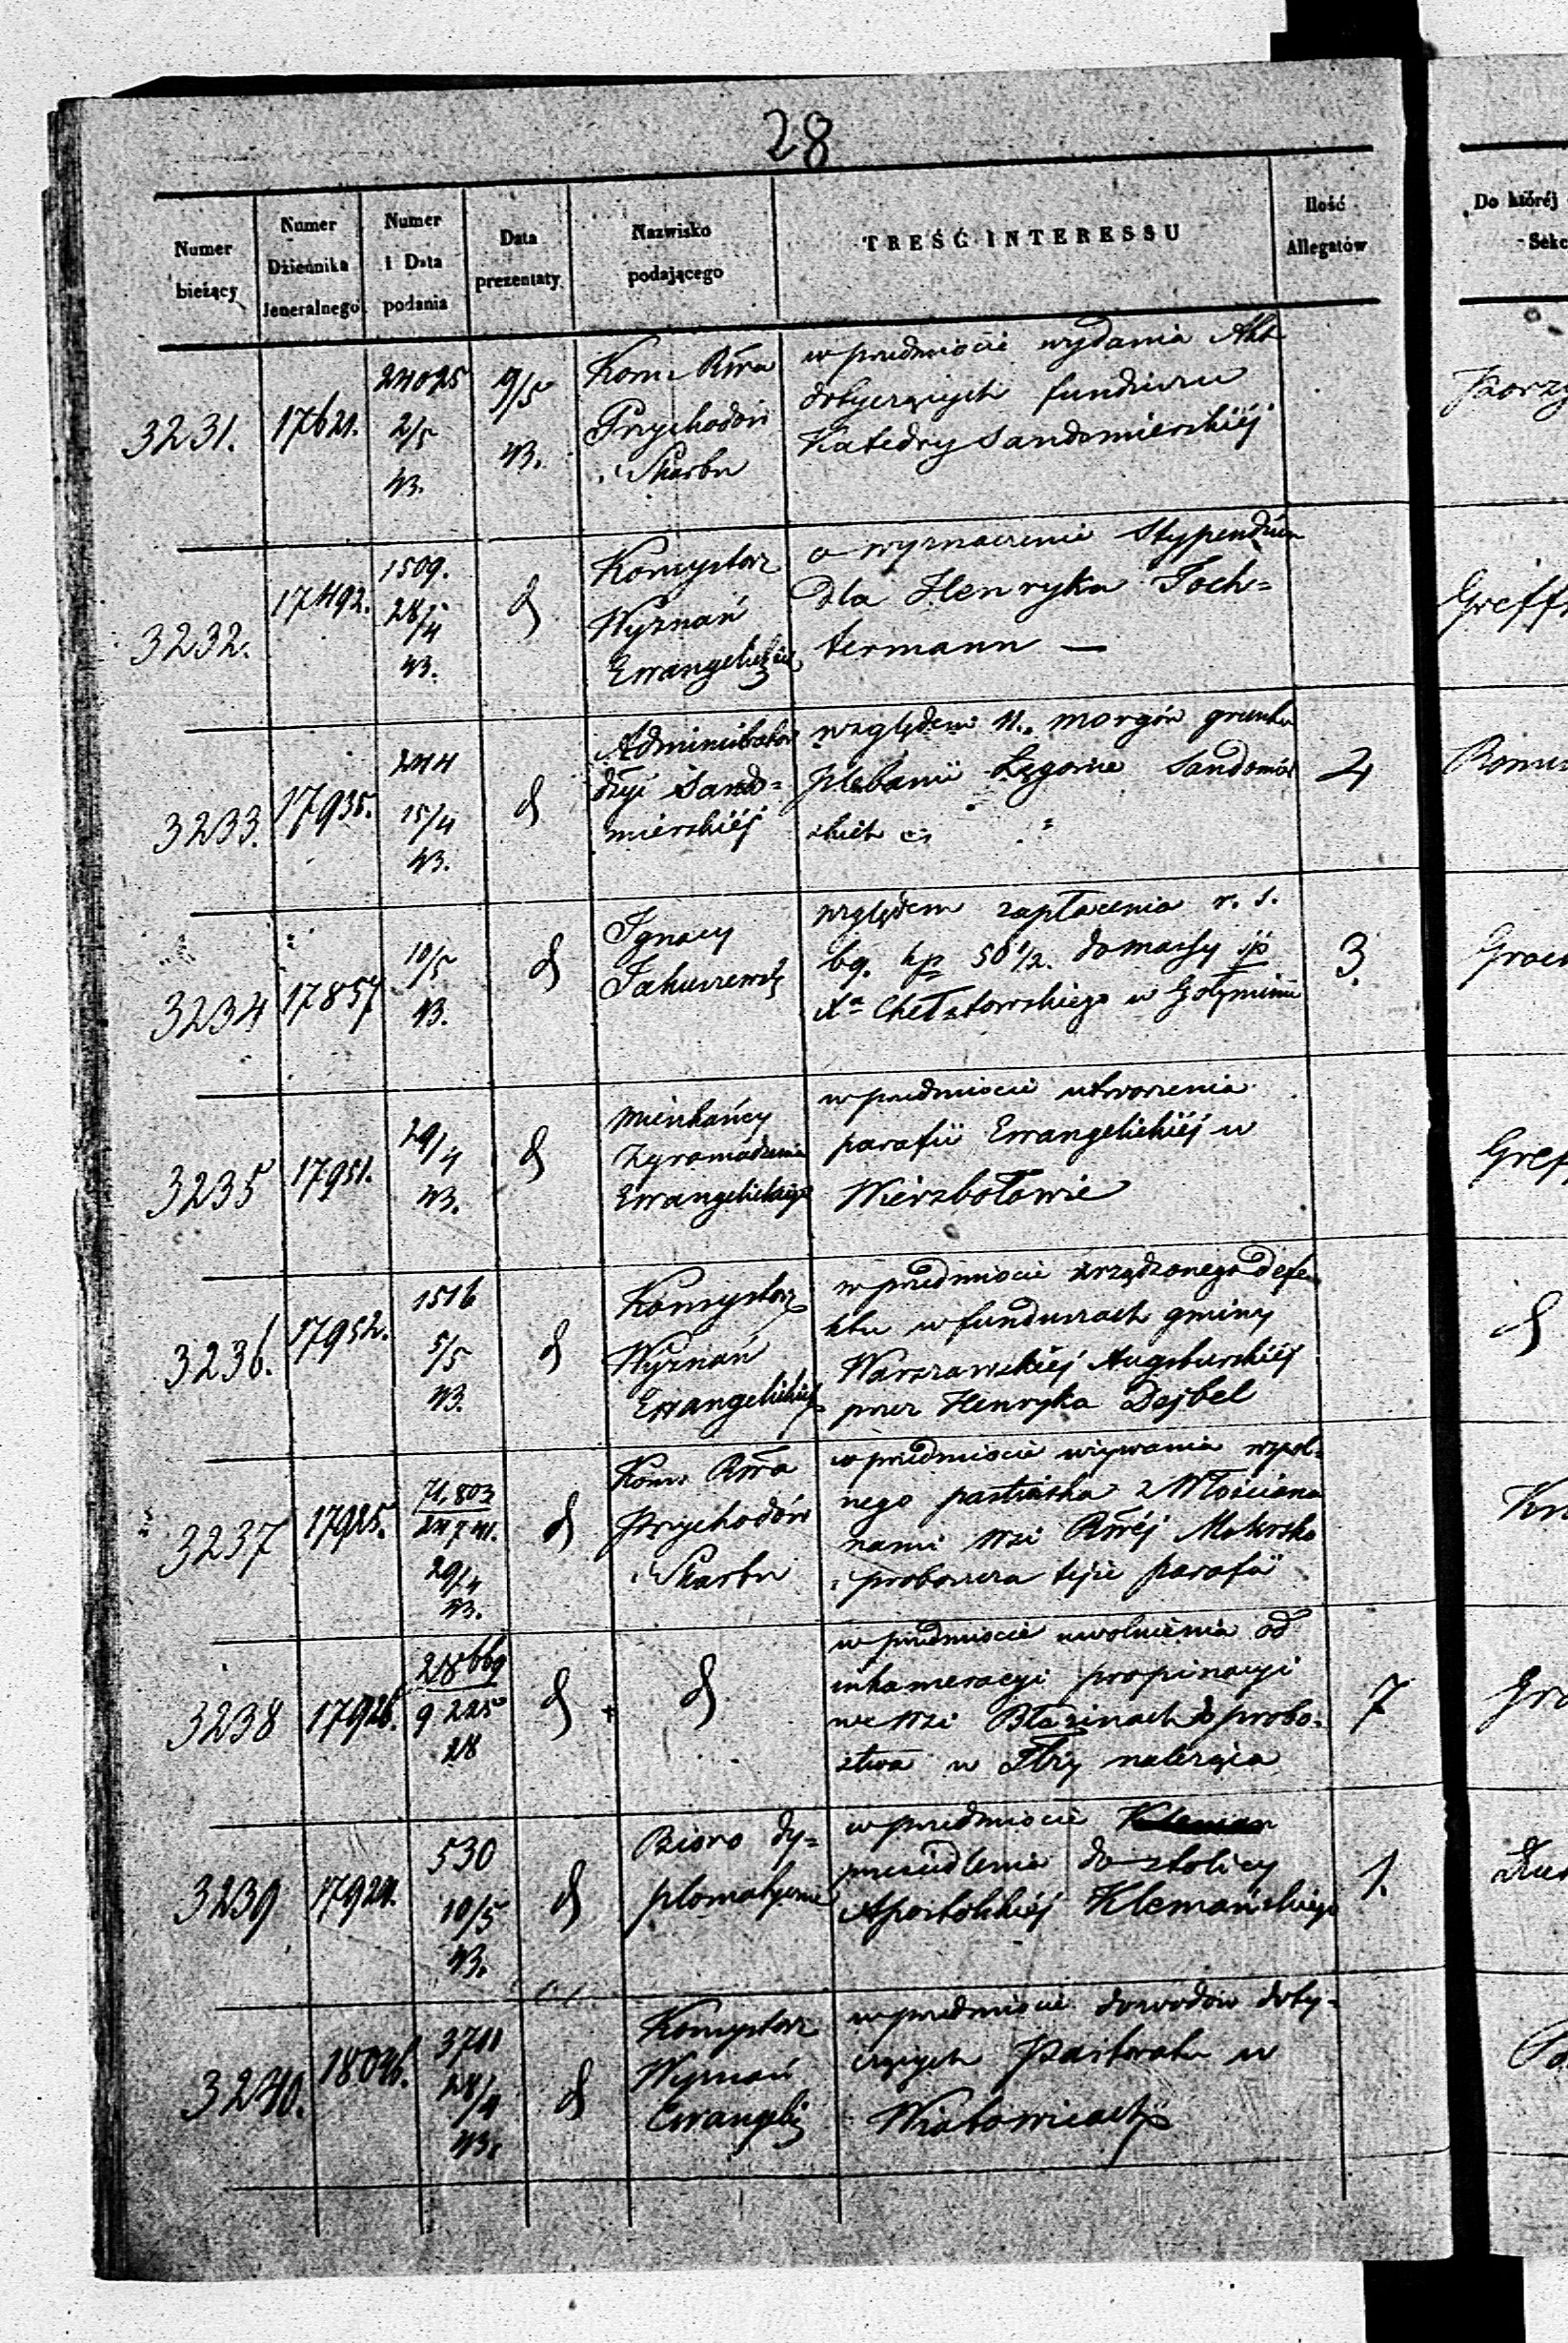 28
Numer bieżący
Numer Dziennika Jeneralnego
Numer i Data podania
Data prezentaty
Nazwisko podającego
TREŚĆ INTERESSU
Ilość Allegatów
Do któréj
Sekc
3231. 17621.
24025
2/5
43.
9/5
43.
Kom. Rwa
Przychodów
i Skarbu
w przedmiocie wydania Akt
dotyczących funduszu
Katedry Sandomierskiéj
3232. 17492.
1509.
28/4
43.
d
Konsystorz
Wyznań
Ewangelickich
o wyznaczenie Stypendium
dla Henryka Toch=
termann —
Greff
3233. 17935.
244
15/4
43.
d
Administrator
dyi Sando=
mierskiéj
względem 11. morgów gruntu
plebanii
skich
3234 17857
10/5
43.
d
Ignacy
względem zapłacenia r. s.
69. kp 50 1/2. do massy śp
Xa Chełstowskiego w Gołyminie
3.
3235 17951.
29/4
43.
d
Mieszkańcy
Zgromadzenia
Ewangelickiego
w przedmiocie utworzenia
parafii Ewangelickiéj w
Wierzbołowie
3236. 17952.
1516
5/5
43.
d
Konsystorz
Wyznań
Ewangelickich
w przedmiocie zrządzonego defe
ktu w funduszach gminy
Warszawskiéj Augsburskiéj
przez Henryka Dejbel
d
3237 17925.
71,803
29/4
43.
d
Kom. Rwa
Przychodów
i Skarbu
w przedmiocie używania wspól=
nego pastwiska z Włościana
nami wsi Rwéj
i proboszcza téjże parafii
3238 17926.
28669
9225
28
d
d
w przedmiocie uwolnienia od
inkameracyi propinacyi
we wsi Błazinach do probo=
stwa w Iłży należąca
7
3239 17924.
530
10/5
43.
d
Bióro dy=
plomatyczne
w przedmiocie
przesiedlenia do stolicy
Apostolskiéj Klemańskiego
1.
3240. 18046.
3711
28/4
43.
d
Konsystorz
Wyznań
Ewangelic
w przedmiocie dowodów doty=
czących Pastoratu w